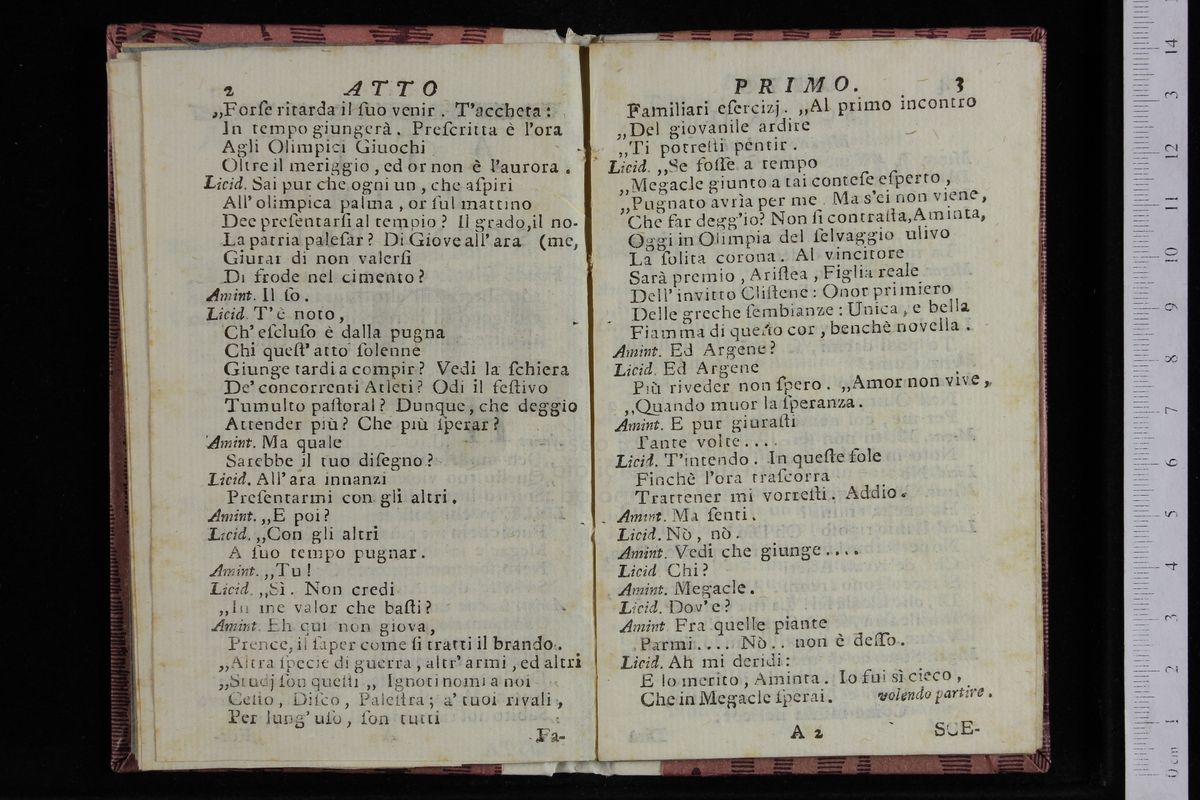 2 ATTO
„Forſe ritarda il ſuo venir. T'accheta:
In tempo giungerà. Preſcritta è l'ora
Agli Olimpici Giuochi
Oltre il meriggio, ed or non è l'aurora.
Licid. Sai pur che ogni un, che aſpiri
All'olimpica palma, or ſul mattino
Dee preſentarſi al tempio? Il grado, il no-
La patria paleſar? Di Giove all'ara (me,
Giurar di non valerſi
Di frode nel cimento?
Amint. Il ſo.
Licid. T'è noto,
Ch'eſcluſo è dalla pugna
Chi queſt'atto ſolenne
Giunge tardi a compir? Vedi la ſchiera
De'concorrenti Atleti? Odi il feſtivo
Tumulto paſtoral? Dunque, che deggio
Attender più? Che più ſperar?
Amint. Ma quale
Sarebbe il tuo diſegno?
Licid. All'ara innanzi
Preſentarmi con gli altri.
Amint. „E poi?
Licid. „Con gli altri
A ſuo tempo pugnar.
Amint. „Tu!
Licid. „Sì. Non credi
„In me valor che baſti?
Amint. Eh qui non giova,
Prence, il ſaper come ſi tratti il brando.
„Altra ſpecie di guerra, altr'armi, ed altri
„Studj ſon queſti „ Ignoti nomi a noi
Ceſto, Diſco, Paleſtra; a'tuoi rivali,
Per lung'uſo, ſon tutti
Fa-
PRIMO. 3
Familiari eſercizj. „Al primo incontro
„Del giovanile ardire
„Ti potreſti pentir.
Licid. „Se foſſe a tempo
„Megacle giunto a tai conteſe eſperto,
„Pugnato avrìa per me. Ma s'ei non viene,
Che far degg'io? Non ſi contraſta, Aminta,
Oggi in Olimpia del ſelvaggio ulivo
La ſolita corona. Al vincitore
Sarà premio, Ariſtea, Figlia reale
Dell'invitto Cliſtene: Onor primiero
Delle greche ſembianze: Unica, e bella
Fiamma di queſto cor, benchè novella.
Amint. Ed Argene?
Licid. Ed Argene
Più riveder non ſpero. „Amor non vive,
„Quando muor la ſperanza.
Amint. E pur giuraſti
Tante volte....
Licid. T'intendo. In queſte fole
Finchè l'ora traſcorra
Trattener mi vorreſti. Addio.
Amint. Ma ſenti.
Licid. Nò, nò.
Amint. Vedi che giunge....
Licid Chi?
Amint. Megacle.
Licid. Dov'e?
Amint Fra quelle piante
Parmi.... Nò.. non è deſſo.
Licid. Ah mi deridi:
E lo merito, Aminta. Io fui sì cieco,
Che in Megacle ſperai. volendo partire.
A 2 SCE-
0 cm 1 2 3 4 5 6 7 8 9 10 11 12 13 14